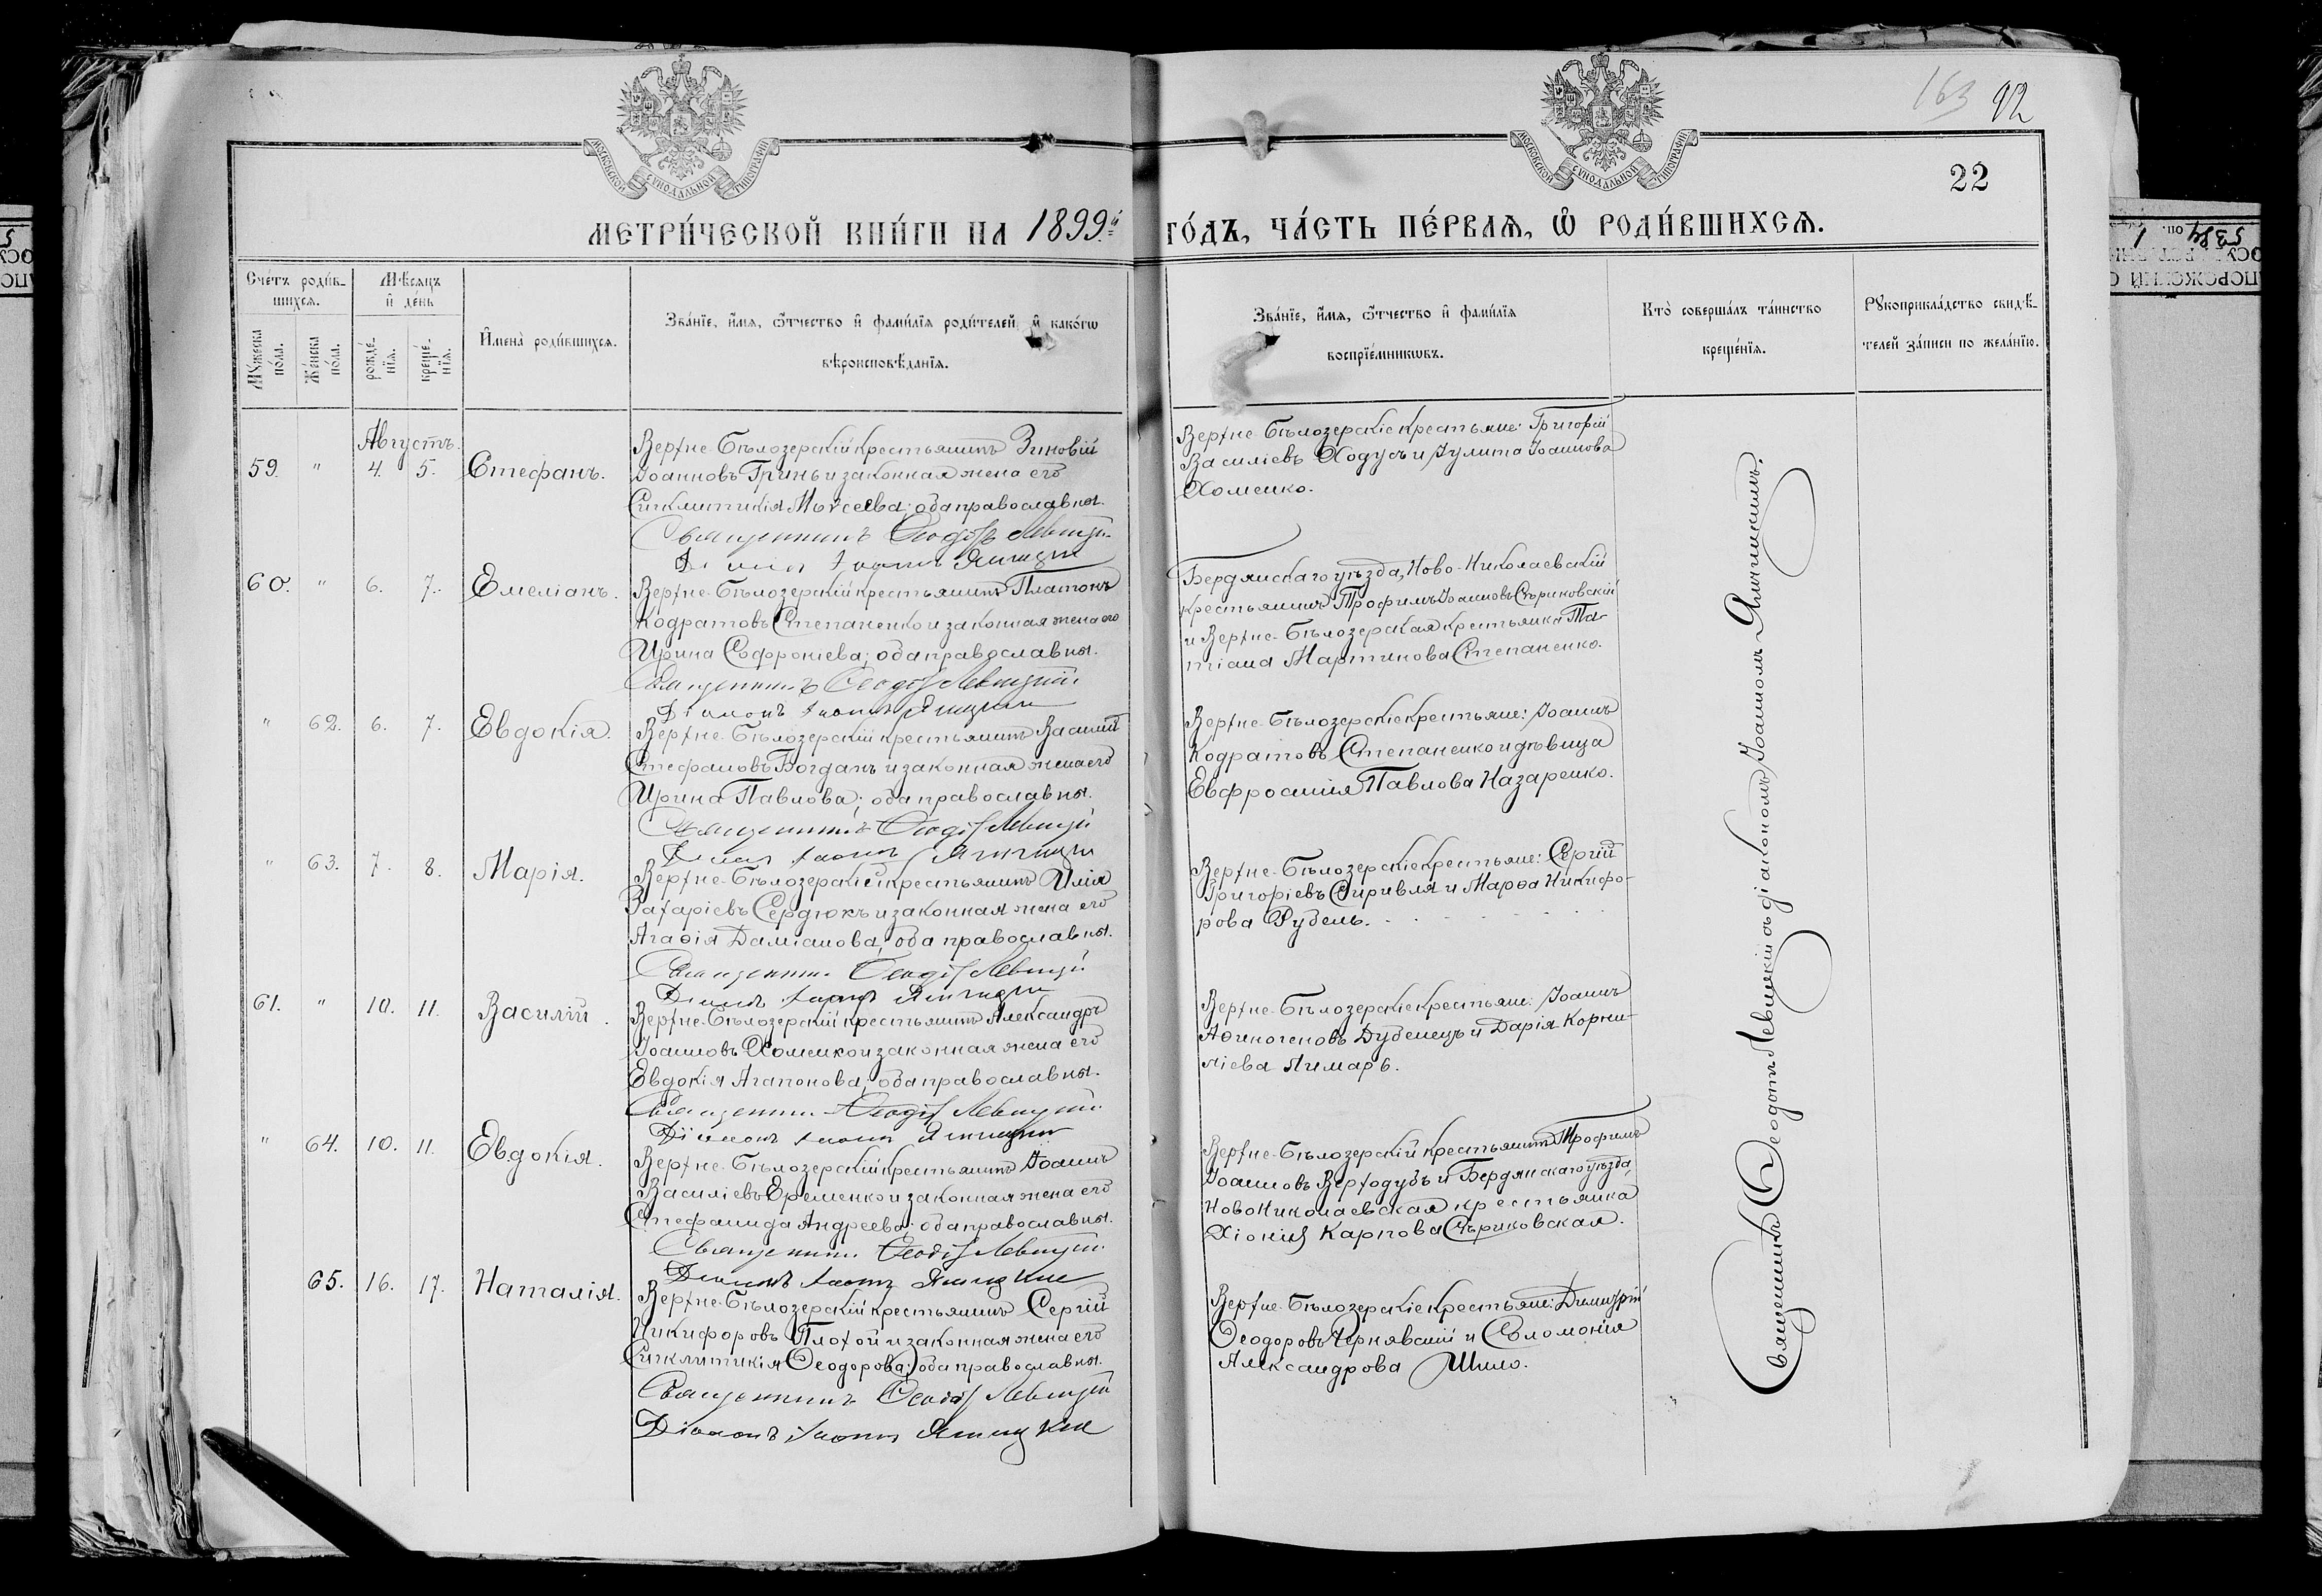 163 92
МОСКОВСКОЙ СѴНОДАЛЬНОЙ ТИПОГРАФІИ
МОСКОВСКОЙ СѴНОДАЛЬНОЙ ТИПОГРАФІИ
22
МЕТРИ́ЧЕСКОЙ КНИ́ГИ НА 1899й ГО́ДЪ, ЧА́СТЬ ПЕ́РВАѦ, Ѡ҆ РОДИ́ВШИХСѦ.
Сче́тъ роди́в-
шихсѧ.
Мꙋжеска по́ла.
Же́нска по́ла.
Мѣ́сѧцъ
и҆ де́нь
рожде́-
нїѧ.
креще́-
нїѧ.
И҆мена̀ роди́вшихсѧ.
Зва́нїе, и҆́мѧ, ѻ҆́тчество и҆ фами́лїѧ роди́телей, и҆ како́гѡ
вѣроисповѣ́данїѧ.
Зва́нїе, и҆́мѧ, ѻ҆́тчество и҆ фами́лїѧ
воспрїе́мникѡвъ.
Кто̀ соверша́лъ та́инство
креще́нїѧ.
Рꙋкоприкла́дство свидѣ́-
телей за́писи по жела́нїю.
Августъ.
59. " 4. 5. Стефанъ.
Верхне-Бѣлозерскій крестьянинъ Зиновій
Іоанновъ Гринь и законная жена его
Сигклитикія Моѵсеева; оба православны.
Священникъ Ѳеодотъ Левицкій
Діаконъ Іоаннъ Яличицкій
Верхне-Бѣлозерскіе крестьяне: Григорій
Василіевъ Ходусъ и Іулита Іоаннова
Хоменко.
60. " 6. 7. Емеліанъ.
Верхне-Бѣлозерскій крестьянинъ Платонъ
Кодратовъ Степаненко и законная жена его
Ирина Софроніева; оба православны.
Священникъ Ѳеодотъ Левицкій
Діаконъ Іоаннъ
Бердянскаго уѣзда, Ново-Николаевскій
крестьянинъ Трофимъ Іоанновъ Сѣриковскій
и Верхне-Бѣлозерская крестьянка Та-
тіана Мартинова Степаненко.
" 62. 6. 7. Евдокія.
Верхне-Бѣлозерскій крестьянинъ Василій
Стефановъ Богданъ и законная жена его
Ирина Павлова; оба православны.
Священникъ Ѳеодотъ Левицкій
Діаконъ Іоаннъ
Верхне-Бѣлозерскіе крестьяне: Іоаннъ
Кодратовъ Степаненко и дѣвица
Евфросинія Павлова Назаренко.
" 63. 7. 8. Марія.
Верхне-Бѣлозерскій крестьянинъ Илія
Захаріевъ Сердюкъ и законная жена его
Агаѳія Даміанова; оба православны.
Священникъ Ѳеодотъ Левицкій
Діаконъ Іоаннъ
Верхне-Бѣлозерскіе крестьяне: Сергій
Григоріевъ и Марѳа Никифо-
рова Рубель.
61. " 10. 11. Василій.
Верхне-Бѣлозерскій крестьянинъ Александръ
Іоанновъ Хоменко и законная жена его
Евдокія Агапонова; оба православны.
Священникъ Ѳеодотъ Левицкій
Діаконъ Іоаннъ
Верхне-Бѣлозерскіе крестьяне: Іоаннъ
Аѳиногеновъ Дубенецъ и Дарія Корни-
ліева Лимарь.
" 64. 10. 11. Евдокія.
Верхне-Бѣлозерскій крестьянинъ Іоаннъ
Василіевъ Еременко и законная жена его
Стефанида Андреева; оба православны.
Священникъ Ѳеодотъ Левицкій
Діаконъ Іоаннъ
Верхне-Бѣлозерскій крестьянинъ Трофимъ
Іоанновъ Верходубъ и Бердянскаго уѣзда,
Ново Николаевская крестьянка
Хіонія Карпова Сѣриковская.
65. 16. 17. Наталія.
Верхне-Бѣлозерскій крестьянинъ Сергій
Никифоровъ Плохой и законная жена его
Сигклитикія Ѳеодорова; оба православны.
Священникъ Ѳеодотъ Левицкій
Діаконъ Іоаннъ
Верхне-Бѣлозерскіе крестьяне: Димитрій
Ѳеодоровъ Чернявскій и Соломонія
Александрова Шило.
Священникъ Ѳеодотъ Левицкій съ діакономъ Іоанномъ